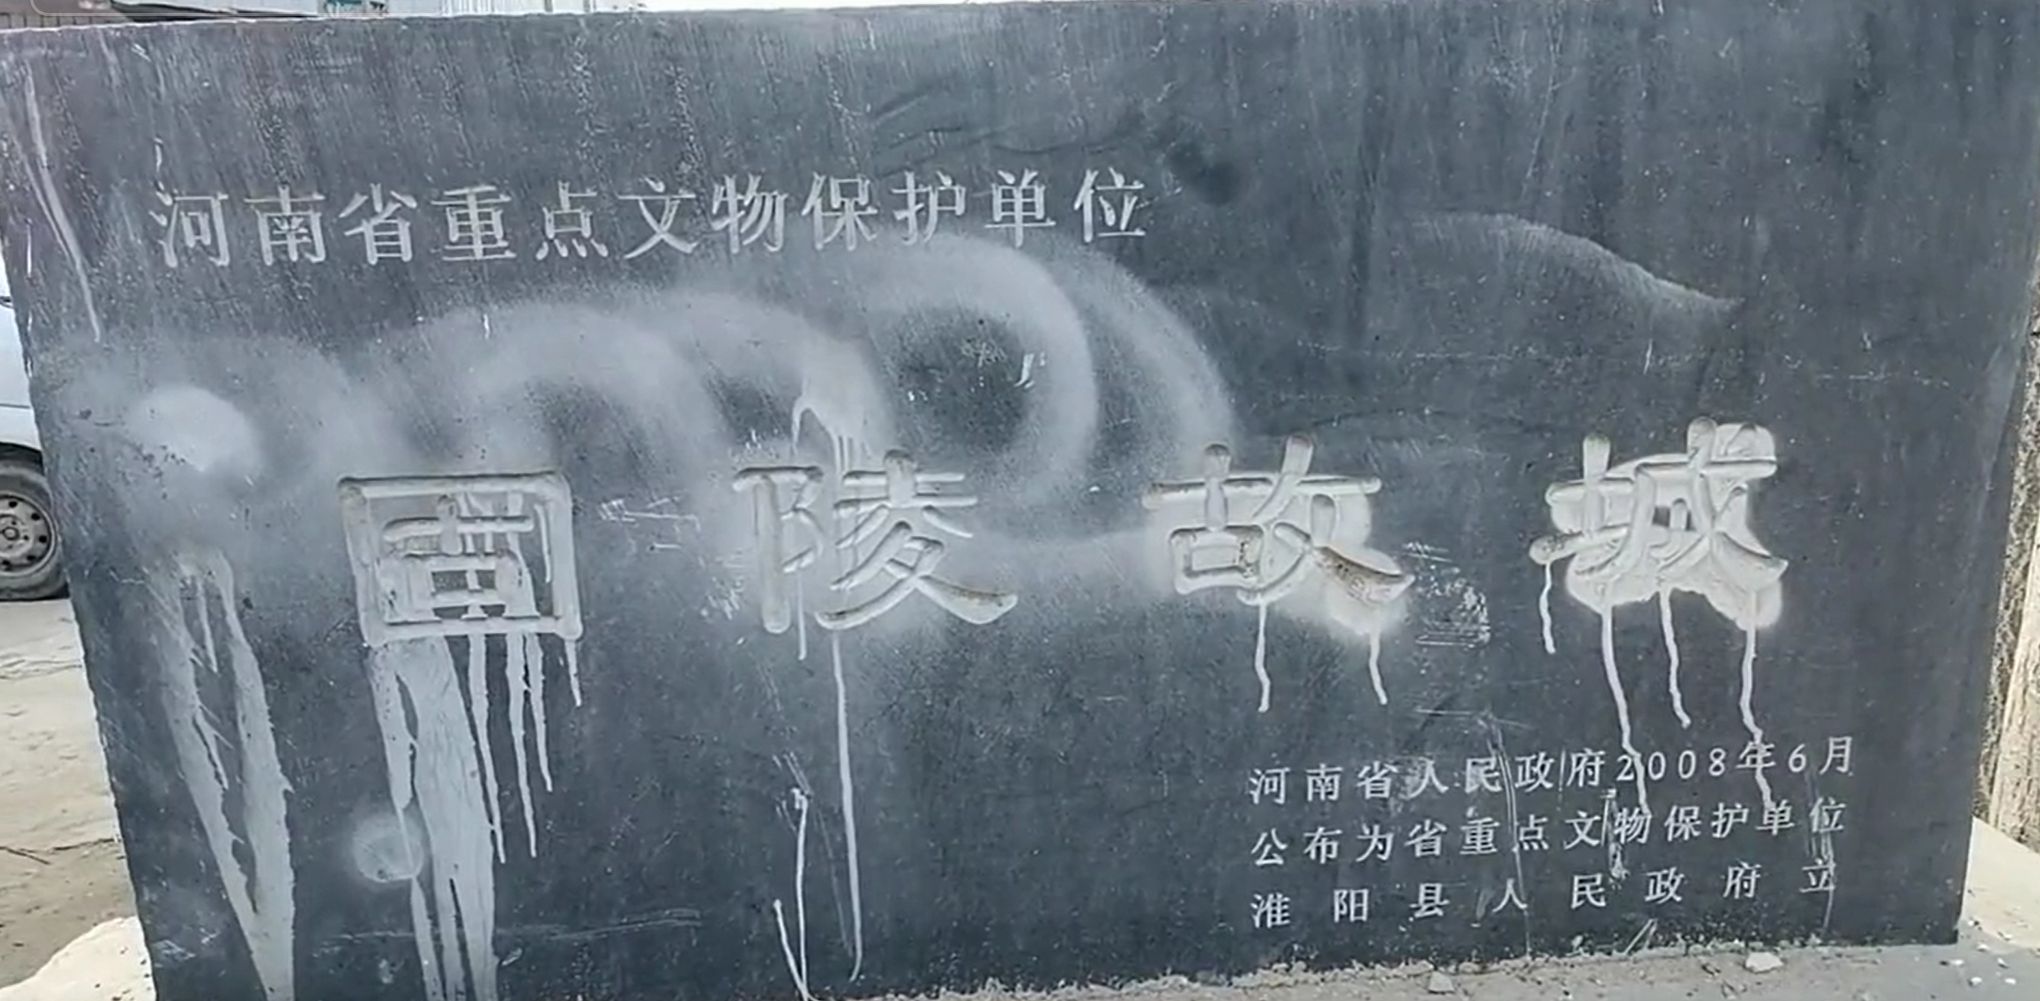 河南省重点文物保护单位
固陵故城
河南省人民政府2008年6月
公布为省重点文物保护单位
淮阳县人民政府立